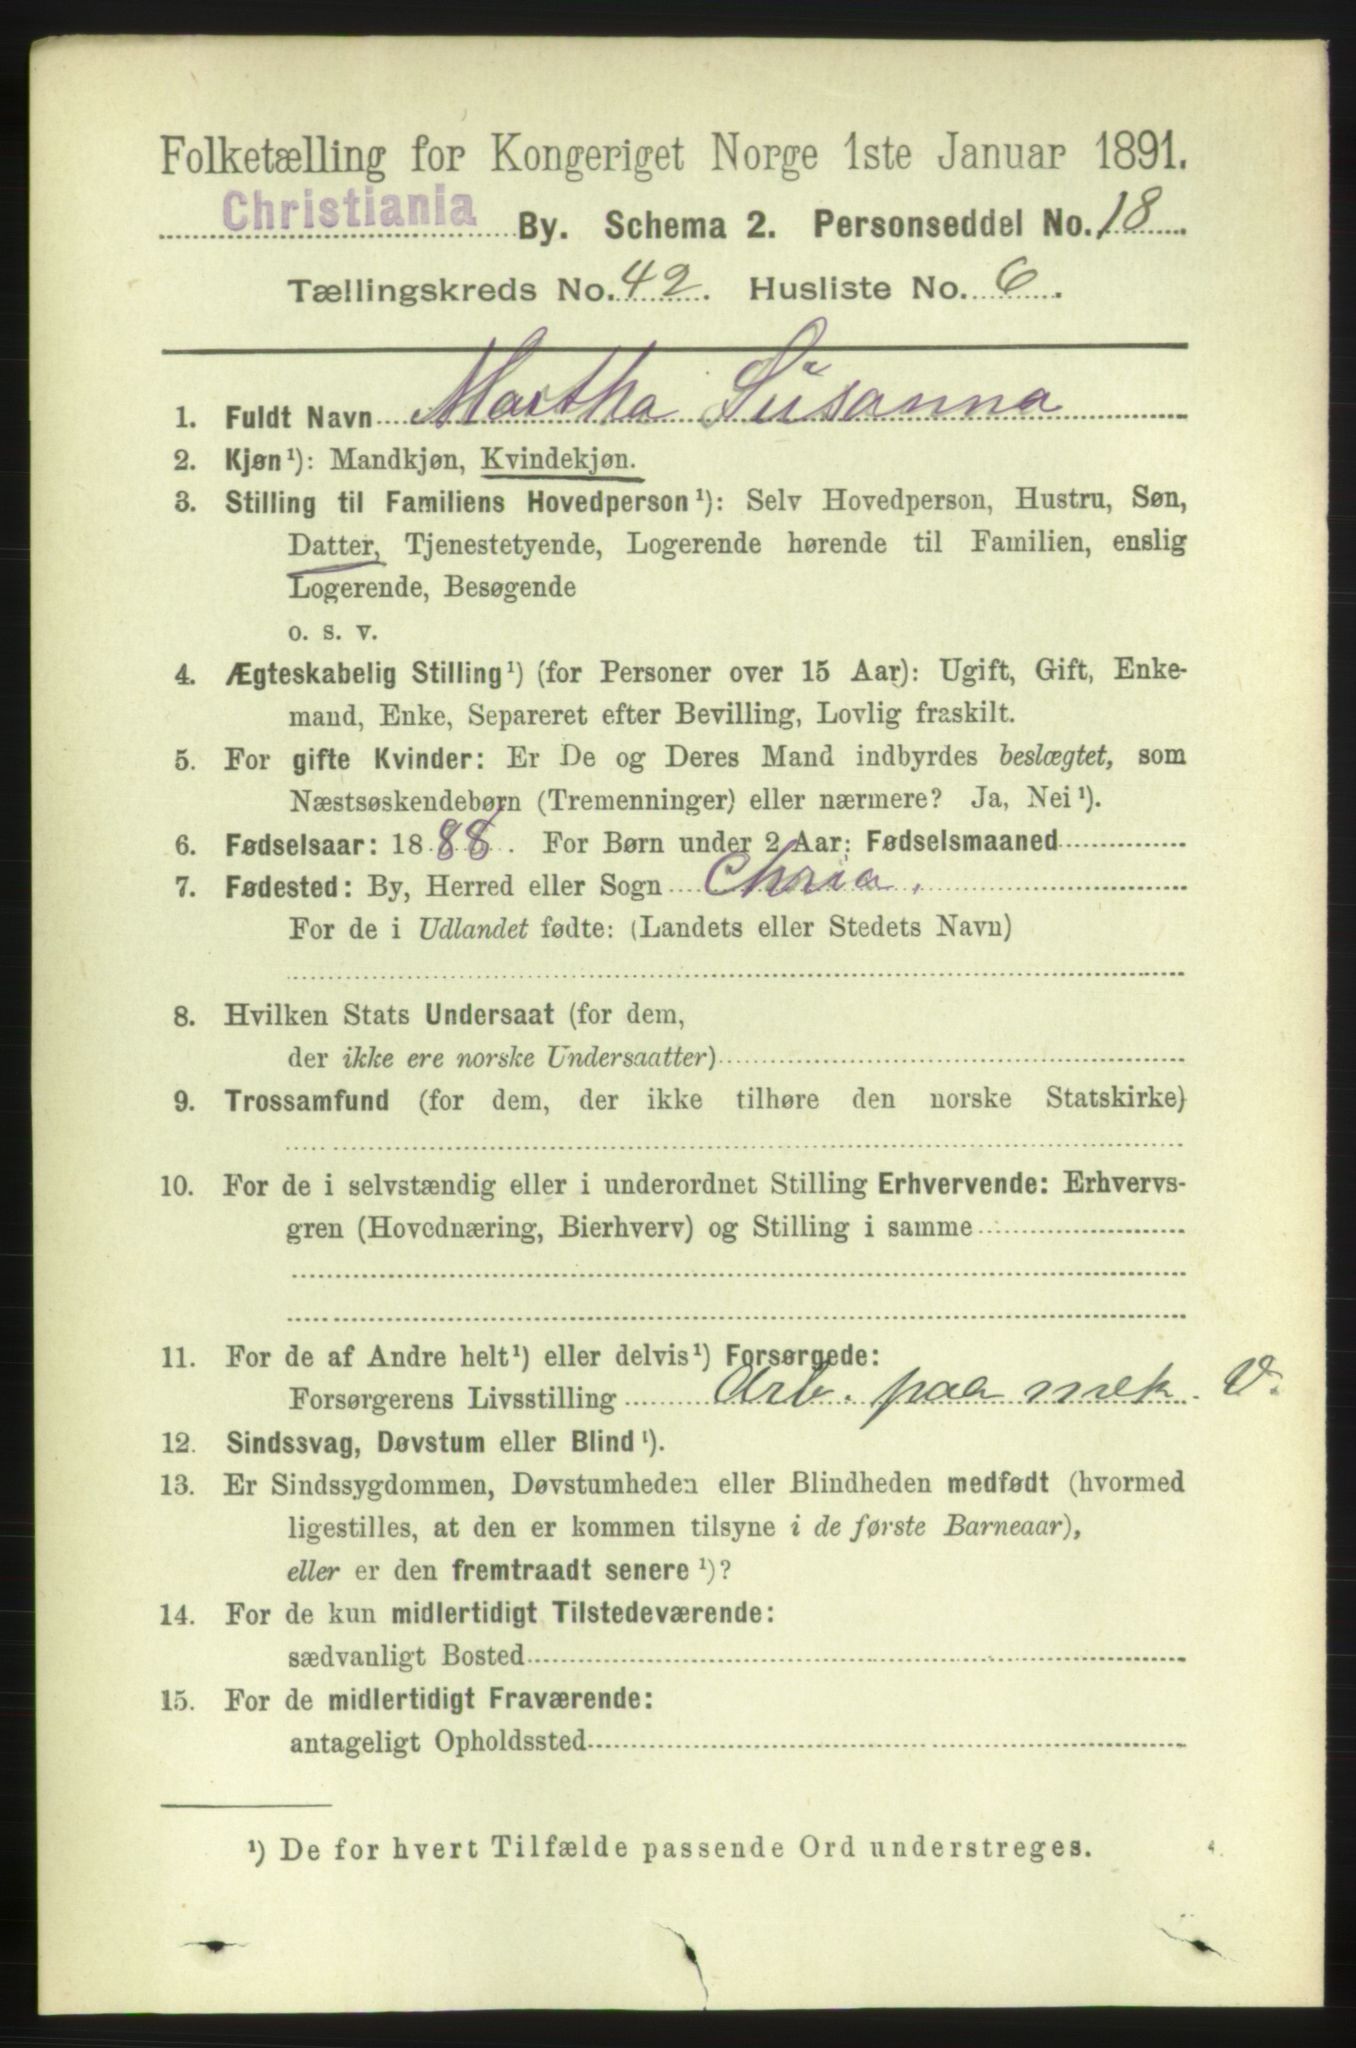 Folketælling for Kongeriget Norge 1ste Januar 1891.
Christiania By. Schema 2. Personseddel No. 18.
Tællingskreds No. 42. Husliste No. 6.
1. Fuldt Navn Martha Susanna
2. Kjøn¹): Mandkjøn, Kvindekjøn.
3. Stilling til Familiens Hovedperson¹): Selv Hovedperson, Hustru, Søn,
Datter, Tjenestetyende, Logerende hørende til Familien, enslig
Logerende, Besøgende
o. s. v.
4. Ægteskabelig Stilling¹) (for Personer over 15 Aar): Ugift, Gift, Enke-
mand, Enke, Separeret efter Bevilling, Lovlig fraskilt.
5. For gifte Kvinder: Er De og Deres Mand indbyrdes beslægtet, som
Næstsøskendebørn (Tremenninger) eller nærmere? Ja, Nei¹).
6. Fødselsaar: 1888. For Børn under 2 Aar: Fødselsmaaned
7. Fødested: By, Herred eller Sogn Chria.
For de i Udlandet fødte: (Landets eller Stedets Navn)
8. Hvilken Stats Undersaat (for dem,
der ikke ere norske Undersaatter)
9. Trossamfund (for dem, der ikke tilhøre den norske Statskirke)
10. For de i selvstændig eller i underordnet Stilling Erhvervende: Erhvervs-
gren (Hovednæring, Bierhverv) og Stilling i samme
11. For de af Andre helt¹) eller delvis¹) Forsørgede:
Forsørgerens Livsstilling Arb. paa mek. V.
12. Sindssvag, Døvstum eller Blind¹).
13. Er Sindssygdommen, Døvstumheden eller Blindheden medfødt (hvormed
ligestilles, at den er kommen tilsyne i de første Barneaar),
eller er den fremtraadt senere¹)?
14. For de kun midlertidigt Tilstedeværende:
sædvanligt Bosted
15. For de midlertidigt Fraværende:
antageligt Opholdssted
¹) De for hvert Tilfælde passende Ord understreges.